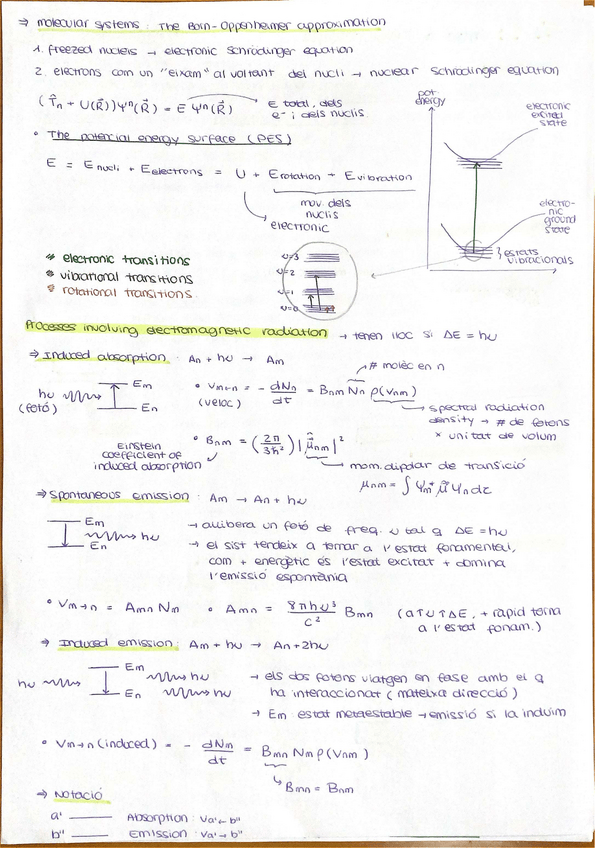 ⇒ molecular systems: The Born-Oppenheimer approximation
1. freezed nucleis → electronic Schrödinger equation
2. electrons com un "eixam" al voltant del nucli → nuclear Schrödinger equation
(T̂n + U(R⃗))Ψⁿ(R⃗) = E Ψⁿ(R⃗)
E total, dels
e⁻ i dels nuclis.
• The potencial energy surface (PES)
E = E nucli + E electrons = U + E rotation + E vibration
mov. dels
nuclis
electronic
pot.
energy
electronic
excited
state
electro-
nic
ground
state
estats
vibracionals
* electronic transitions
* vibrational transitions
* rotational transitions.
υ=3
υ=2
υ=1
υ=0
Processes involving electromagnetic radiation → tenen lloc si ΔE = hυ
⇒ Induced absorption: An + hυ → Am
hυ
(fotó)
Em
En
# molèc en n
• Vm←n = - dNn/dt = Bnm Nn ρ(νnm)
(veloc)
spectral radiation
density → # de fotons
× unitat de volum
• Bnm = (2π/3ħ²) |μ̂nm|²
Einstein
coefficient of
induced absorption
mom. dipolar de transició
μnm = ∫ Ψm* μ̂ Ψn dτ
⇒ Spontaneous emission: Am → An + hυ
Em
En
hυ
→ allibera un fotó de freq. υ tal q ΔE = hυ
→ el sist tendeix a tornar a l'estat fonamental,
com + energètic és l'estat excitat + domina
l'emissió espontània
• Vm→n = Amn Nm • Amn = 8πhυ³/c² Bmn (a ↑υ ↑ΔE, + ràpid torna
a l'estat fonam.)
⇒ Induced emission: Am + hυ → An + 2hυ
hυ
Em
En
hυ
hυ
→ els dos fotons viatgen en fase amb el q
ha interaccionat (mateixa direcció)
→ Em estat metaestable → emissió si la induïm
• Vm→n (induced) = - dNm/dt = Bmn Nm ρ(νnm)
Bmn = Bnm
⇒ Notació
a' Absorption: Va'←b"
b" Emission: Va'→b"